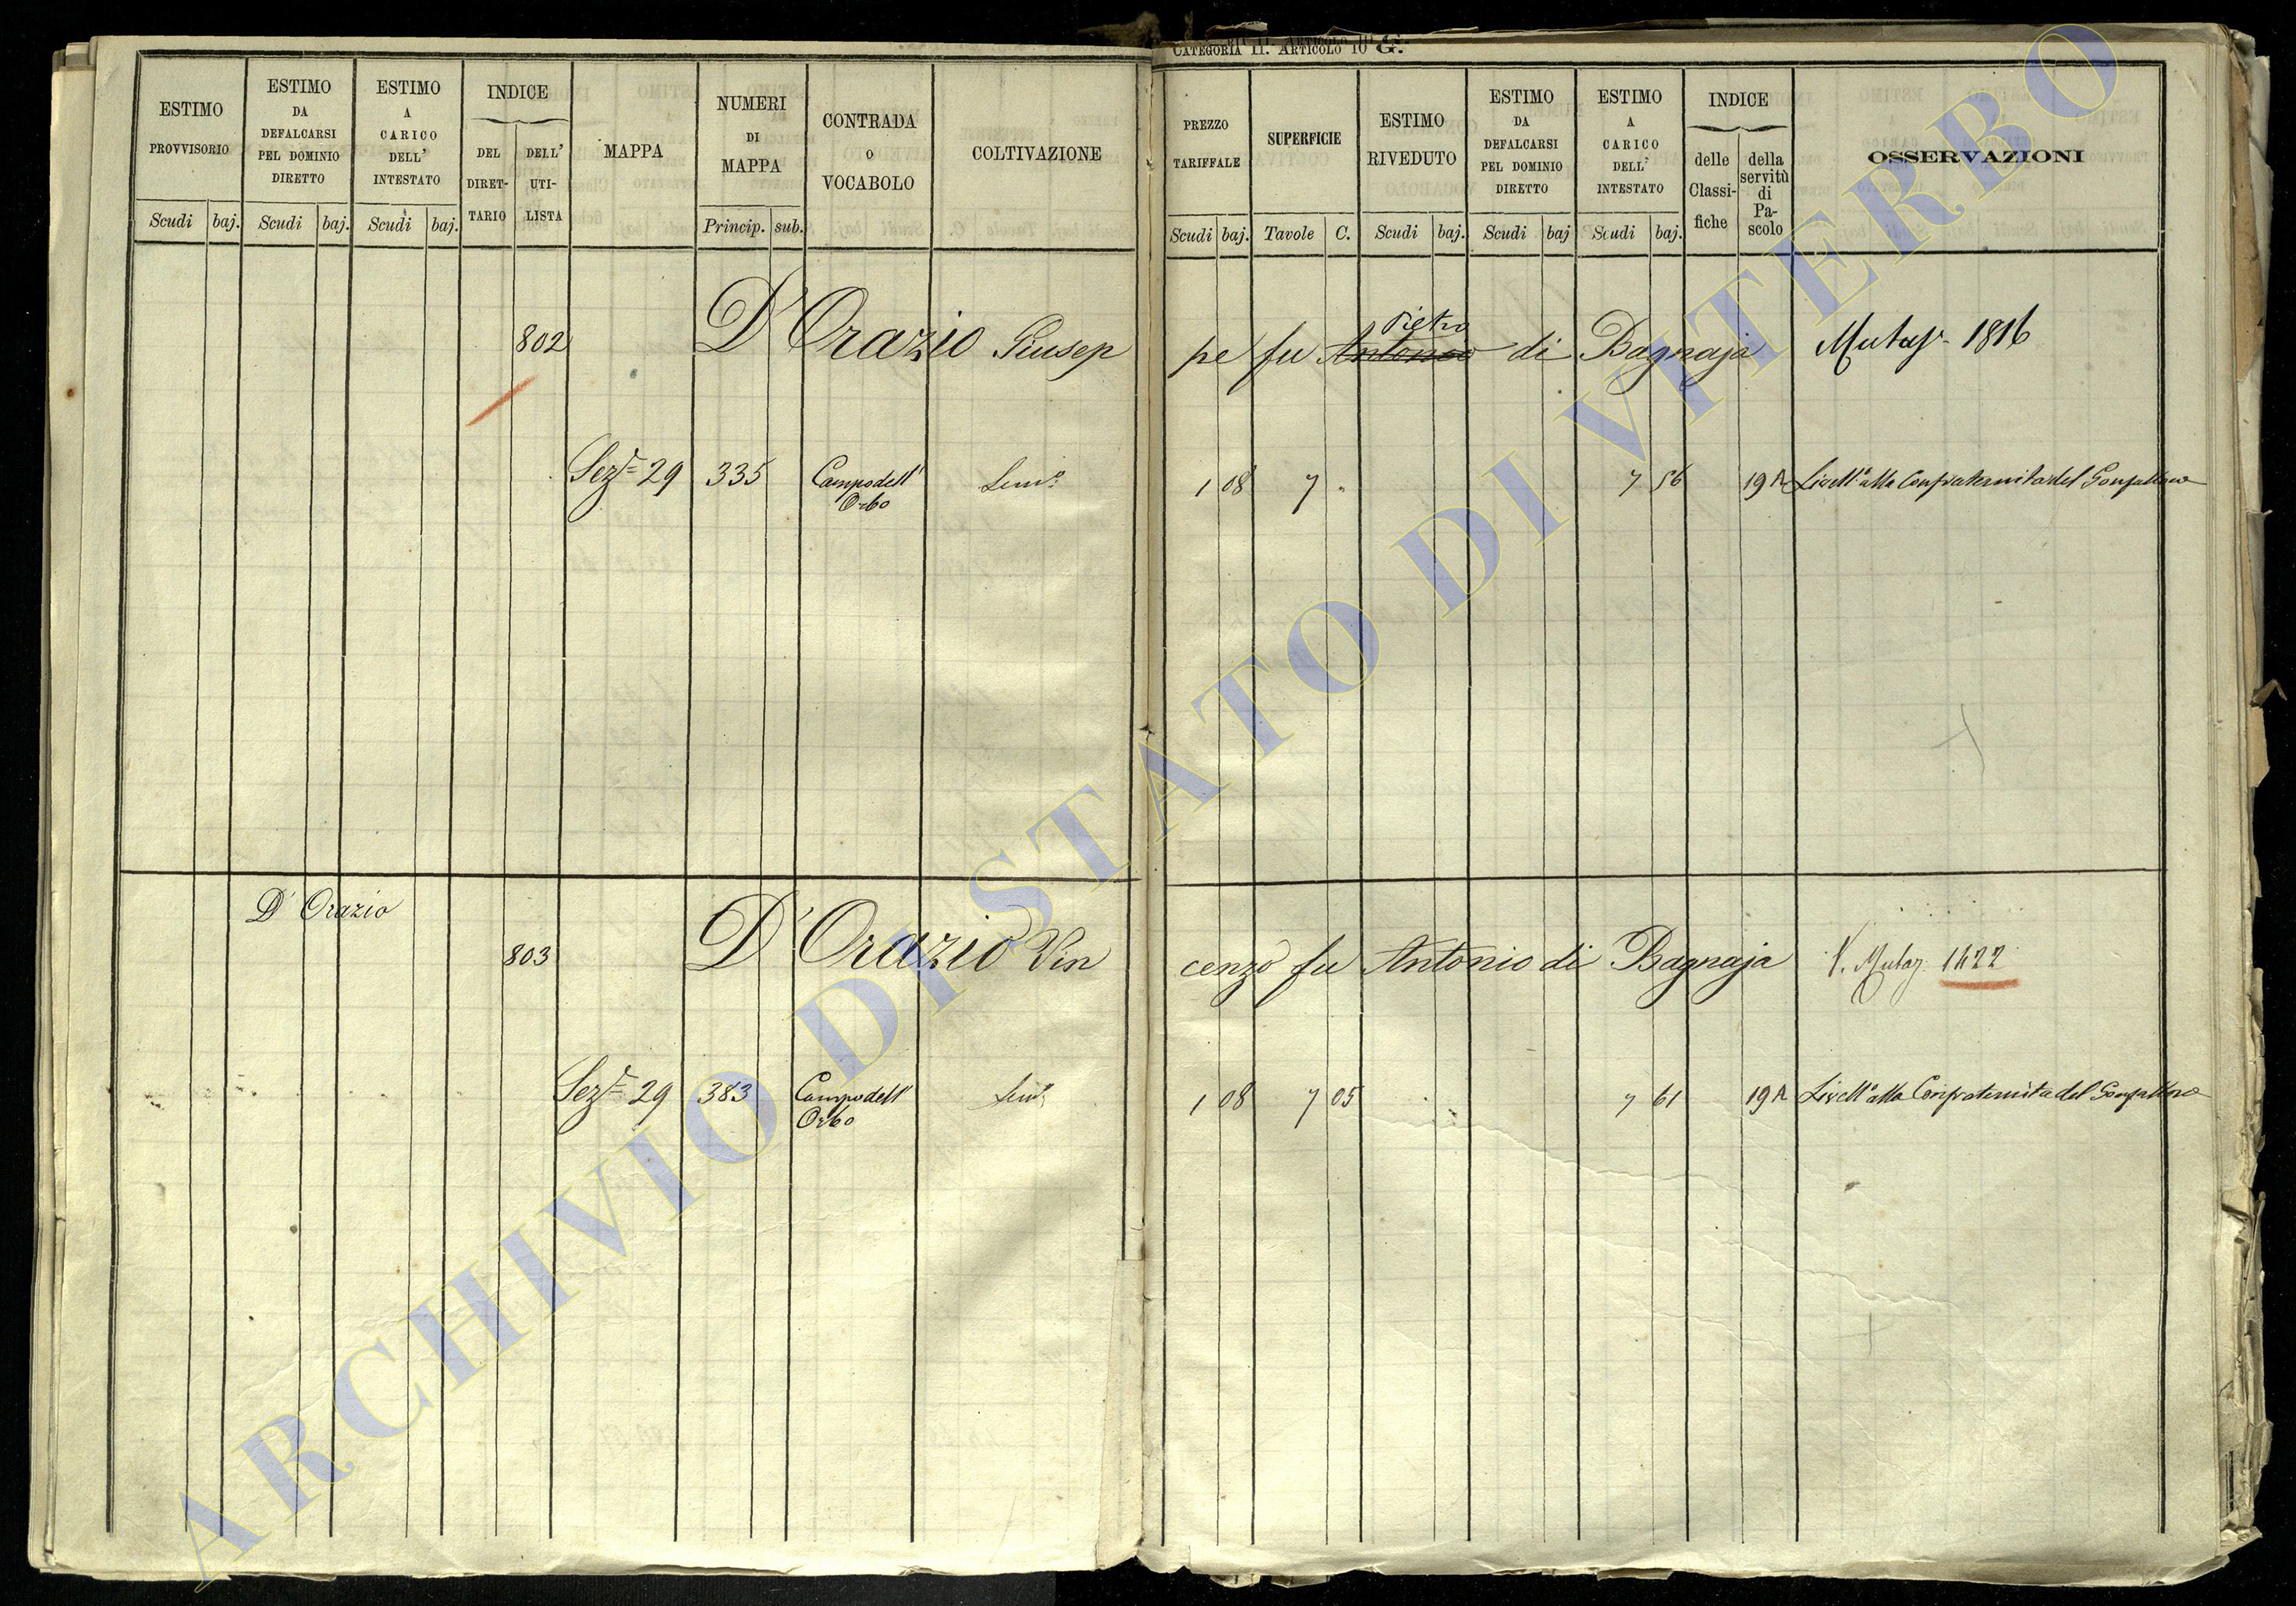 CATEGORIA II. ARTICOLO 10 G.
ESTIMO PROVVISORIO
ESTIMO DA DEFALCARSI PEL DOMINIO DIRETTO
ESTIMO A CARICO DELL' INTESTATO
INDICE
DEL DIRETTARIO
DELL' UTILISTA
MAPPA
NUMERI DI MAPPA
CONTRADA O VOCABOLO
COLTIVAZIONE
Scudi baj. Scudi baj. Scudi baj. Princip. sub.
PREZZO TARIFFALE
SUPERFICIE
ESTIMO RIVEDUTO
ESTIMO DA DEFALCARSI PEL DOMINIO DIRETTO
ESTIMO A CARICO DELL' INTESTATO
INDICE
delle Classifiche
della servitù di Pascolo
OSSERVAZIONI
Scudi baj. Tavole C. Scudi baj. Scudi baj Scudi baj.
Pietro
802 D'Orazio Giusep pe fu Antonio di Bagnaja Mutaz. 1816
Sez.e 29 335 Campo dell' Sem.o 1 08 7 " 7 56 19 A Livell.o alla Confraternita del Gonfallone
Orbo
D'Orazio
803 D'Orazio Vin cenzo fu Antonio di Bagnaja V. Mutaz. 1422
Sez.e 29 383 Campo dell' Sem.o 1 08 7 05 7 61 19 A Livell.o alla Confraternita del Gonfallone
Orbo
ARCHIVIO DI STATO DI VITERBO